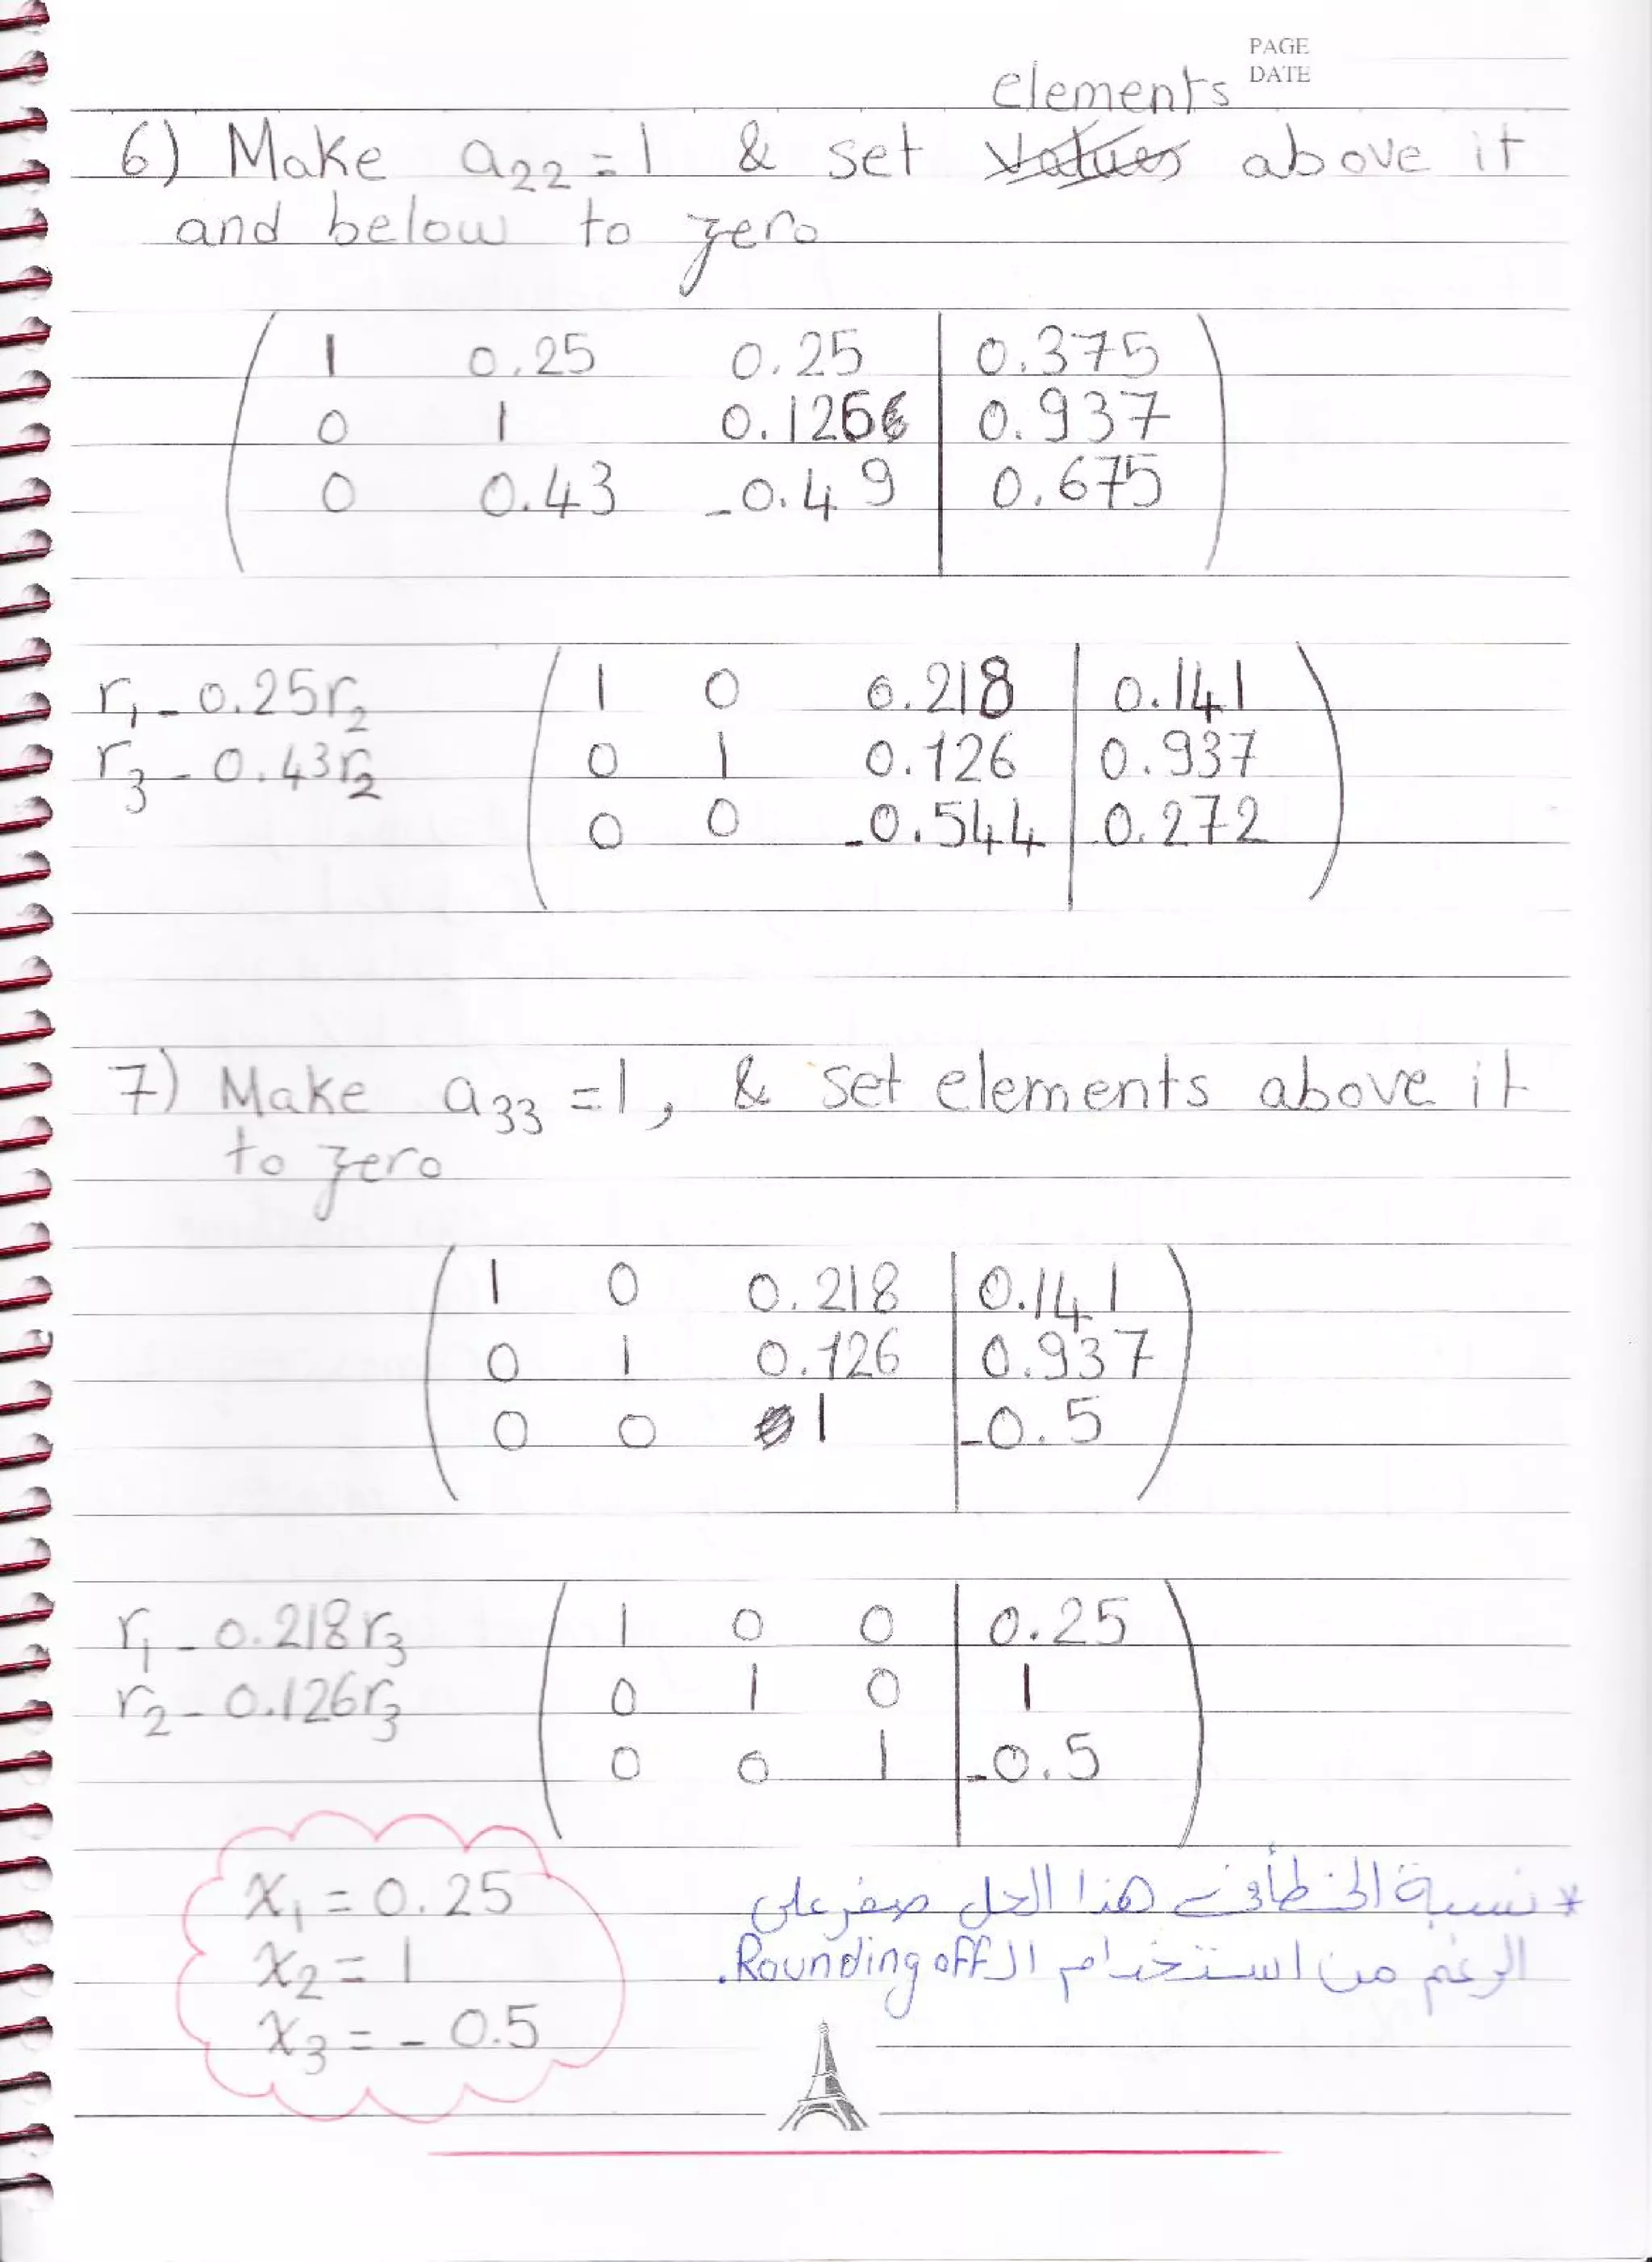 PAGE
DATE
elements
6) Make a22 = 1 & set values above it
and below to zero
1 0.25 0.25 | 0.375
0 1 0.126 | 0.937
0 0.43 -0.49 | 0.675
r1 - 0.25r2
r3 - 0.43r2
1 0 0.218 | 0.141
0 1 0.126 | 0.937
0 0 -0.544 | 0.272
7) Make a33 = 1, & set elements above it
to zero
1 0 0.218 | 0.141
0 1 0.126 | 0.937
0 0 1 | -0.5
r1 - 0.218r3
r2 - 0.126r3
1 0 0 | 0.25
0 1 0 | 1
0 0 1 | -0.5
x1 = 0.25
x2 = 1
x3 = - 0.5
* نسبة الخطأ في هذا الحل صفر على
الرغم من استخدام الـ Rounding off.